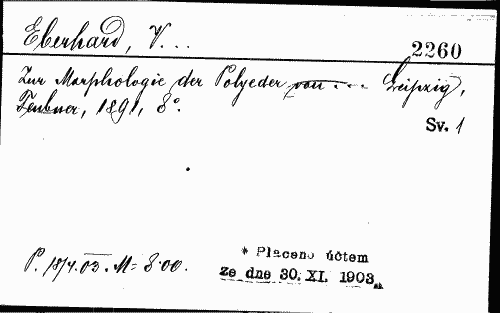 Eberhard, V...
2260
Zur Morphologie der Polyeder von ... Leipzig,
Teubner, 1891, 8°.
Sv. 1
P. 18/4. 03. M= 8·00.
* Placeno účtem
ze dne 30. XI. 1903